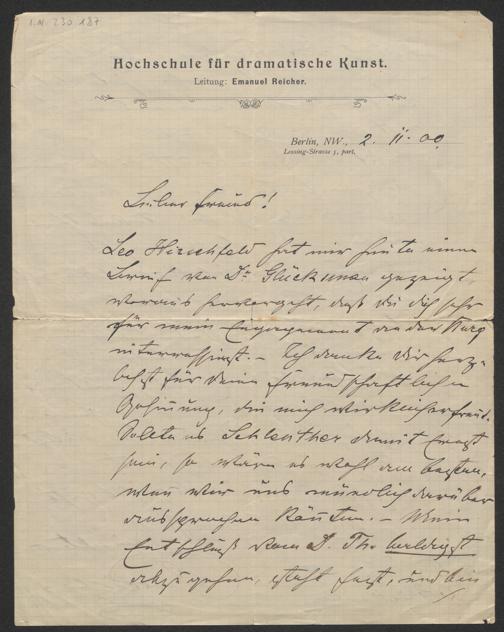 I.N. 230.187
Hochschule für dramatische Kunst.
Leitung: Emanuel Reicher.
Berlin, NW., 2. II. 00.
Lessing-Strasse 5, part.
Lieber Freund!
Leo Hirschfeld hat mir heute einen
Brief von Dr. Glücksman gezeigt,
woraus hervorgeht, daß du dich sehr
für mein Engagement an der Burg
interressirst. – Ich danke dir herz-
lichst für deine freundschaftliche
Gesinnung, die mich wirklich erfreut.
Sollte es Schlenther damit Ernst
sein, so wäre es wohl am besten,
wenn wir uns mündlich darüber
aussprechen könnten. – Mein
Entschluß vom D. Th. baldigst
abzugehen, steht fest, und bin